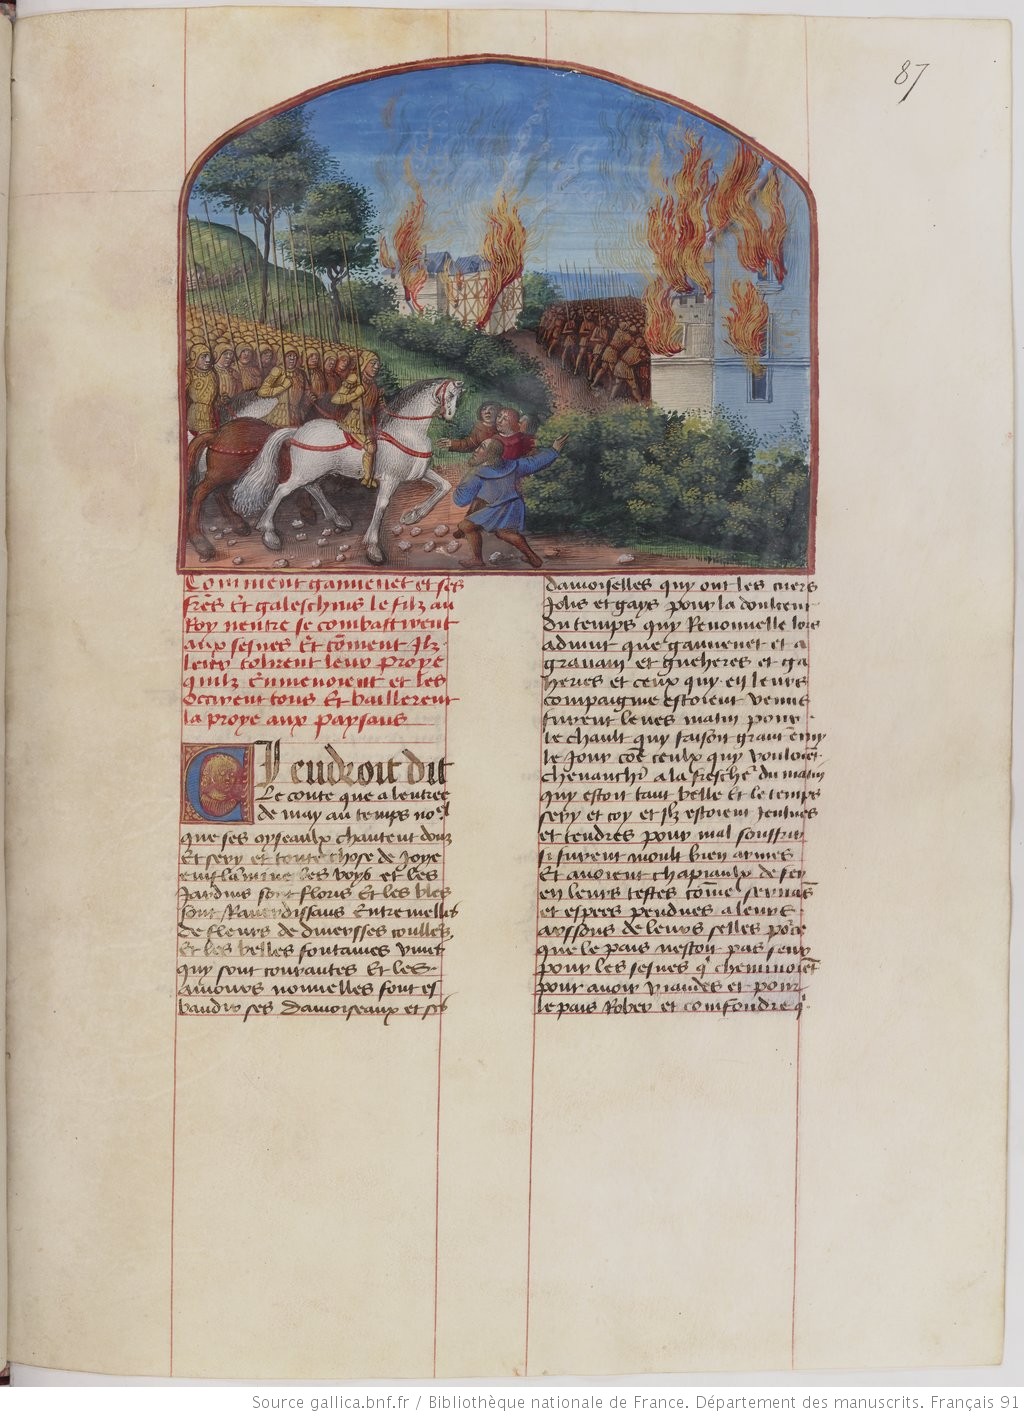 87
Comment gauuenet et ses
frēs Et galeschins le filz au
Roy neutre se combattirent
aux sesnes Et cōment Ilz
leur tolirent leur proye
quilz Enmenoient et les
occirent tous Et baillerent
la proye aux paysans
Cy endroit dit
Le conte que a lentree
de may au temps noel
que ses oyseaulx chantent doulz
Et sery et toute chose de Joye
enflamme les boys et les
Jardins sont floris Et les bles
sont Rauerdissans Entremellez
de fleurs de diuersses coulleurs
Et les belles fontaines viues
quy sont courantes Et les
Amours nouuelles font es
baudir ses Damoiseaux et ses
damoiselles quy ont les cuers
Jolis et gays pour la doulceur
du temps quy Renouuelle lors
aduint que gauuenet et a
grauain et gueheres et ga
heries et ceux quy en leurs
compaignie estoient venus
furent leues matin pour
le chault quy faisoit grant Enuy
le Jour Côe ceulx quy vouloiēt
cheuauchr a la fresche du matin
quy estoit tant belle Et le temps
sery et coy et Ilz estoient Jeunes
et tendres pour mal souffrir
si furent moult bien armes
Et auoient chapiaulx de fer
en leurs testes cōme sernās
et espees pendues a leurs
arssons de leurs selles pōce
que le pais nestoit pas seur
pour les sesnes q̄ cheminoiēt
pour auoir viandes et pour
le pais Rober et comfondre q̄
Source gallica.bnf.fr / Bibliothèque nationale de France. Département des manuscrits. Français 91